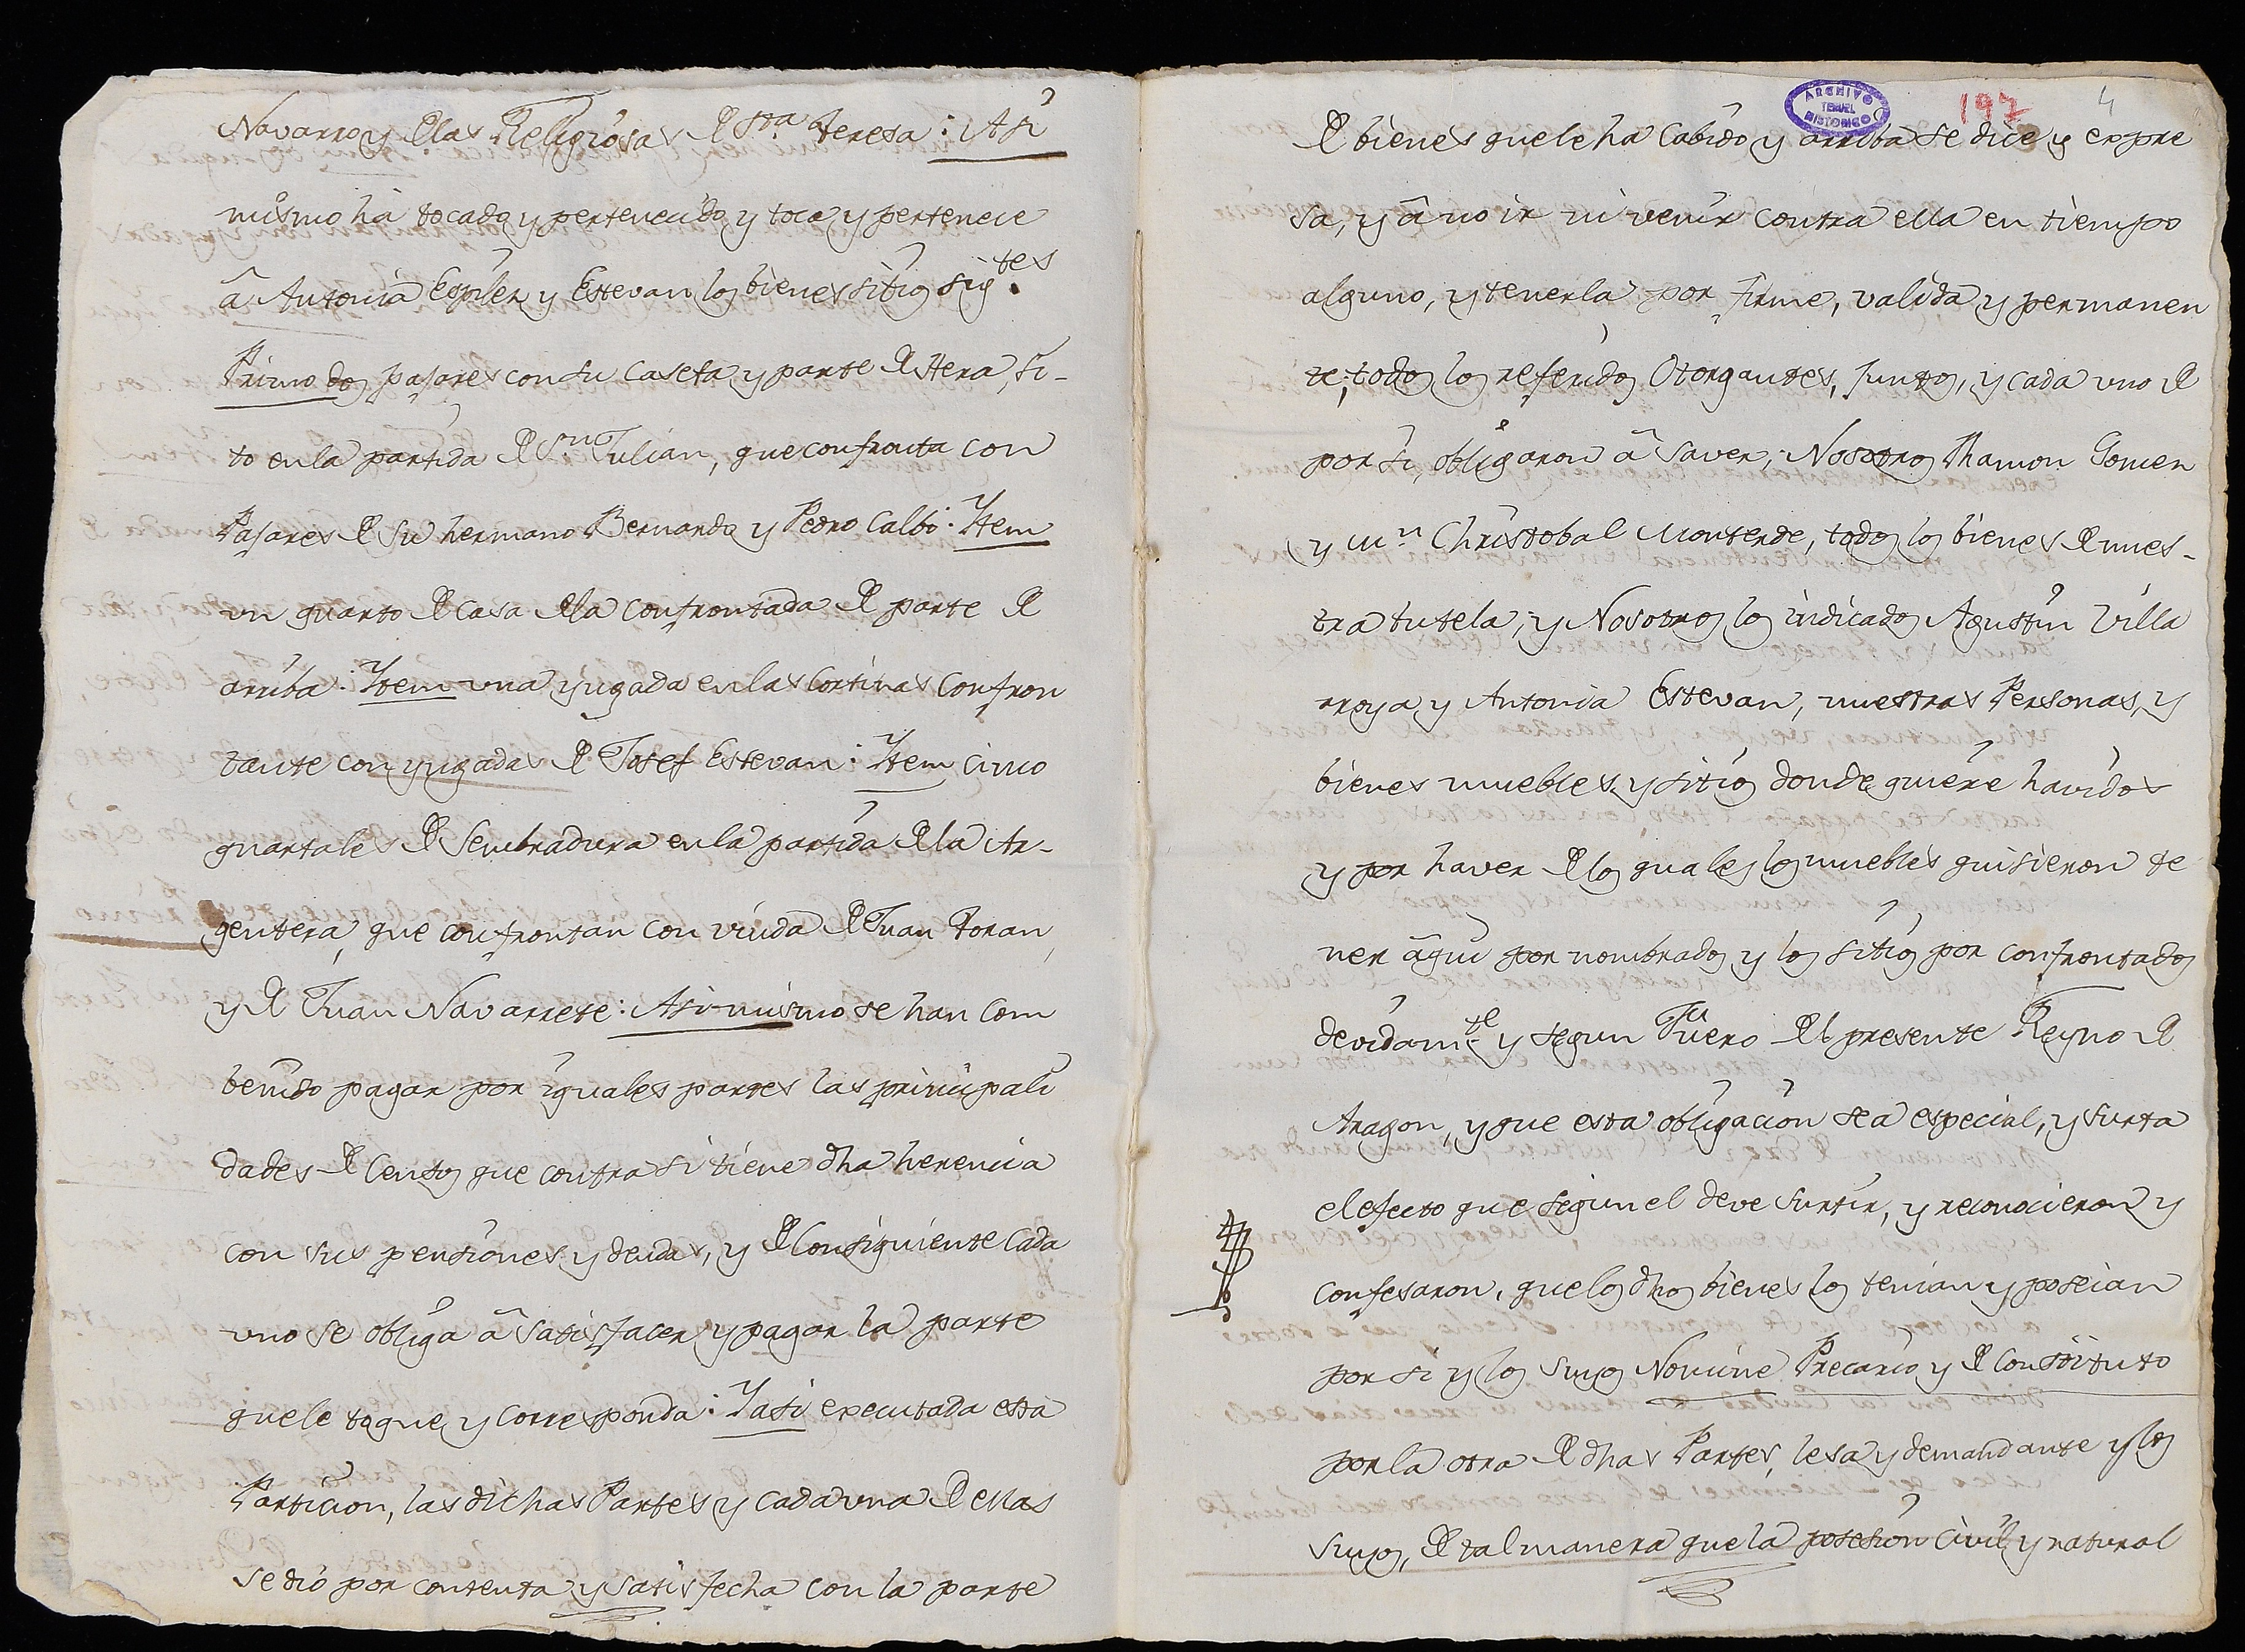 Navarro y de las Religiosas de Sta. Teresa: Asi
mismo hà tocado y pertenecido y toca y pertenece
â Antonia Espilez y Estevan los bienes sitios sigtes.
Primo dos pajares con su caseta y parte de Hera, si-
to en la partida de Sn. Julian, que confronta con
Pajares de su hermano Bernardo y Pedro Calbo: Item
un quarto de casa de la confrontada de parte de
arriba: Item una yugada en las Cortinas confron
tante con yugadas de Josef Estevan: Item cinco
quartales de Sembradura en la partida de la Ar-
gentera, que confrontan con viuda de Juan Toran,
y de Juan Navarrete: Asi-mismo se han com
benido pagar por iguales partes las principali
dades de Censos que contra si tiene dha herencia
con sus pensiones y deudas, y de Consiguiente Cada
uno se obliga â satisfacer y pagar la parte
que le toque y corresponda: Y asi executada esta
Particion, las dichas Partes y cada una de ellas
se dió por contenta y satisfecha con la parte
ARCHIVO
TERUEL
HISTORICO
197
4
de bienes que le ha cabido y arriba se dice y expre
sa, y â no ir ni venir contra ella en tiempo
alguno, y tenerla por firme, valida y permanen
te; todos los referidos Otorgantes, juntos, y cada uno de
por si, obligaron â saver; Nosotros Ramon Gomez
y Mn. Christobal Monterde, todos los bienes de nues-
tra tutela; y Nosotros los indicados Agustin Villa
rroya y Antonia Estevan, nuestras Personas, y
bienes muebles y sitios donde quiere havidos
y por haver de los quales los muebles quisieron te
ner âqui por nombrados y los sitios por confrontados
devidamte. y segun Fuero del presente Reyno de
Aragon, y que esta obligacion sea especial, y surta
el efecto que segun el deve surtir, y reconocieron y
confesaron, que los dhos bienes los tenian y poseian
por si y los suyos Nomine Precario y de Constituto
por la otra de dhas Partes, lesa y demandante y los
suyos, de tal manera que la posesion civil y natural